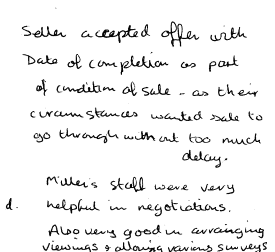 Seller accepted offer with
Date of completion as part
of condition of sale - as their
circumstances wanted sale to
go through without too much
delay.
Miller's staff were very
d. helpful in negotiations.
Also very good in arranging
viewings & allowing various surveys